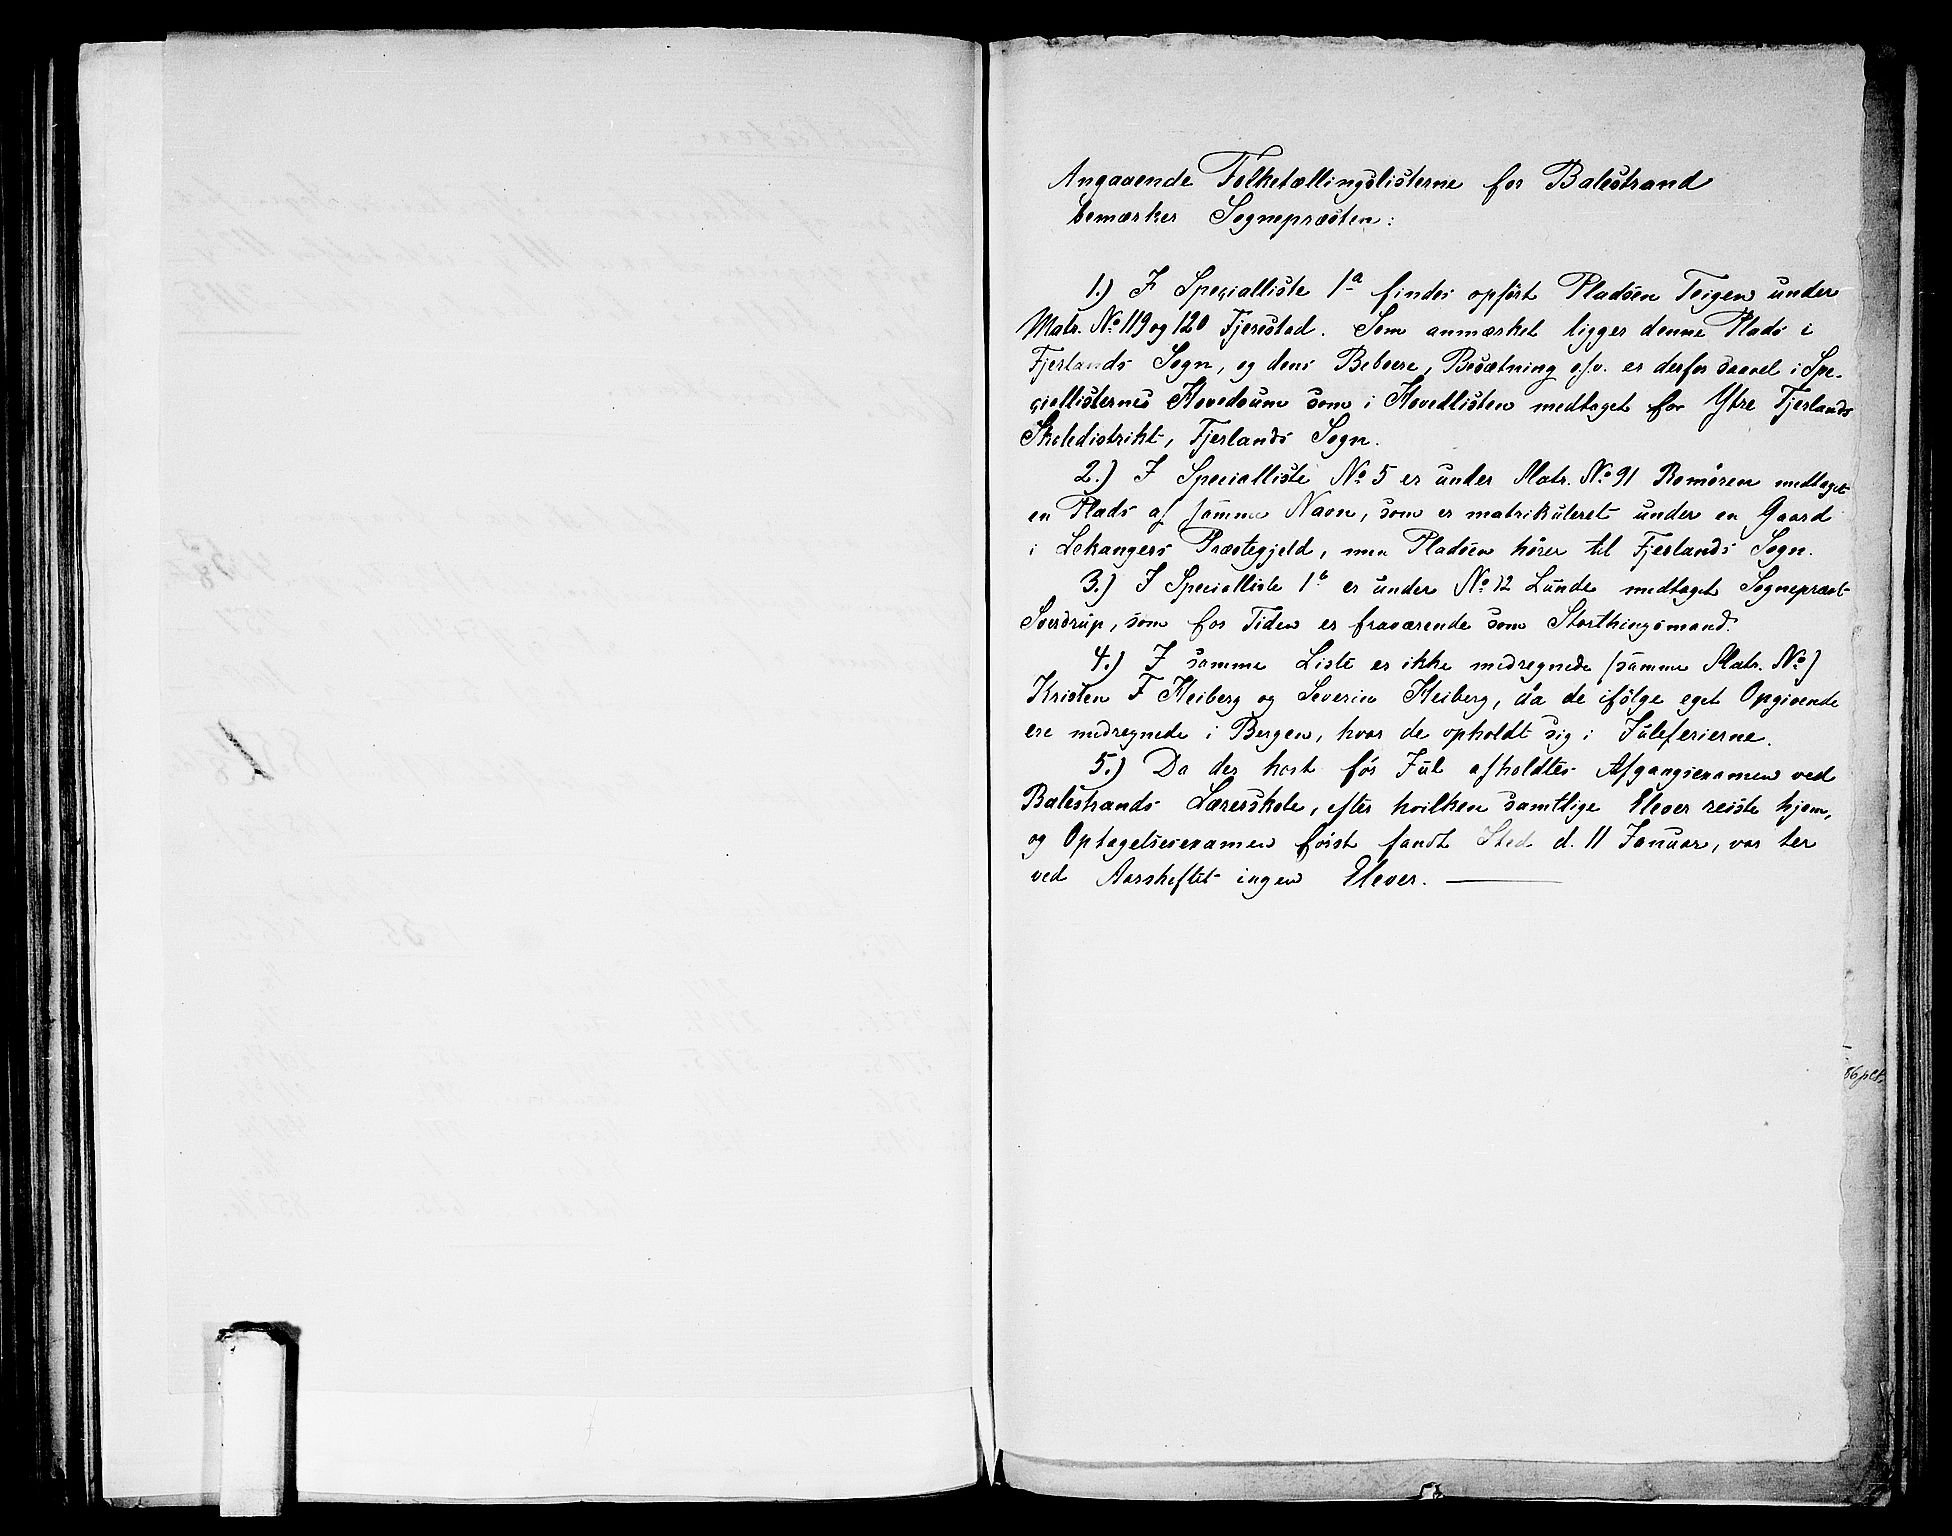 Angaaende Folketællingslisterne for Balestrand
bemærker Sognepræsten:
1.) I Specialliste 1a findes opført Pladsen Teigen under
Matr. No 119 og 120 Fjærestad. Som anmærket ligger denne Plads i
Fjærlands Sogn, og dens Beboere, Besætning o.s.v. er derfor saavel i Spe-
ciallisternes Hovedsum som i Hovedlisten medtaget for Ytre Fjærlands
Skoledistrikt, Fjærlands Sogn.
2.) I Specialliste No 5 er under Matr. No 91 Romøren medtaget
en Plads af samme Navn, som er matrikuleret under en Gaard
i Lekangers Præstegjeld, men Pladsen hører til Fjærlands Sogn.
3.) I Specialliste 1b er under No 12 Lunde medtaget Sogneprest
Sverdrup, som for Tiden er fraværende som Storthingsmand.
4.) I samme Liste er ikke medregnede (samme Matr. No)
Kristen F Heiberg og Severin Heiberg, da de ifølge eget Opgivende
ere medregnede i Bergen, hvor de opholdt sig i Juleferierne.
5.) Da der kort før Jul afholdtes Afgangsexamen ved
Balestrands Lærerskole, efter hvilken samtlige Elever reiste hjem,
og Optagelsesexamen først fandt Sted d. 11 Januar, var der
ved Aarsskiftet ingen Elever.